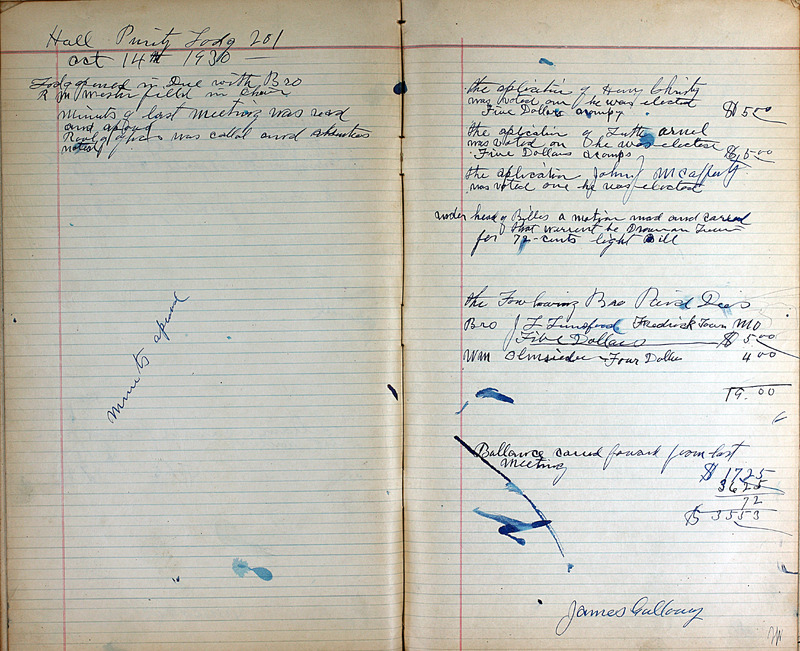 Hall Purity Lodg 201
oct 14th 1930 —
Lodg opened in Due with Bro
R M Mester filled in Chair
Minuts of last meeting was read
and aproud
Roul of was called and absentees
noted
minuts aproud
the application of Harry
was voted on he was elected
Five Dollars acompy $ 5 00
the aplication of Luther
was voted on he was elected
Five Dollars acomps $ 5 00
the aplication John J McCafferty
was voted one he was elected
under head of Billes a motion mad and caried
that warrent be Drawn on
for 72 cents light Bill
the Following Bro Paid Dies
Bro J L Lunsford Fredrock Town Mo
Five Dollars $ 5 00
Wm Four Dollars 4 00
19. 00
Ballance caried foward from last
meeting
$ 1725
3625
72
$ 3553
James Galloway